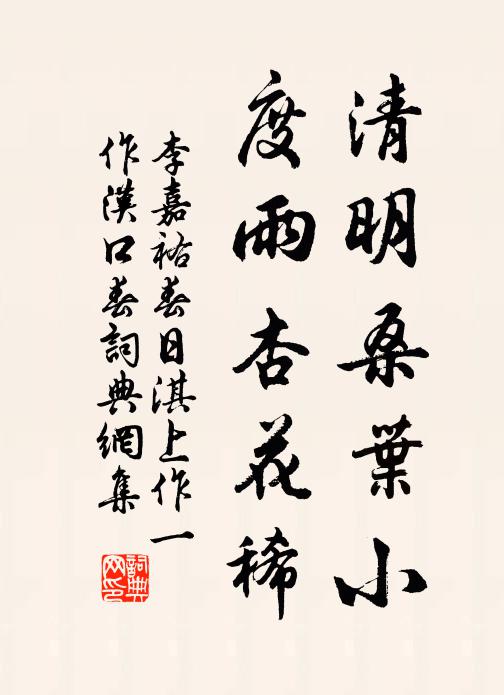 清明桑葉小
度雨杏花稀
李嘉祐春日淇上作一
作漢口春詞典網集
詞典
网印